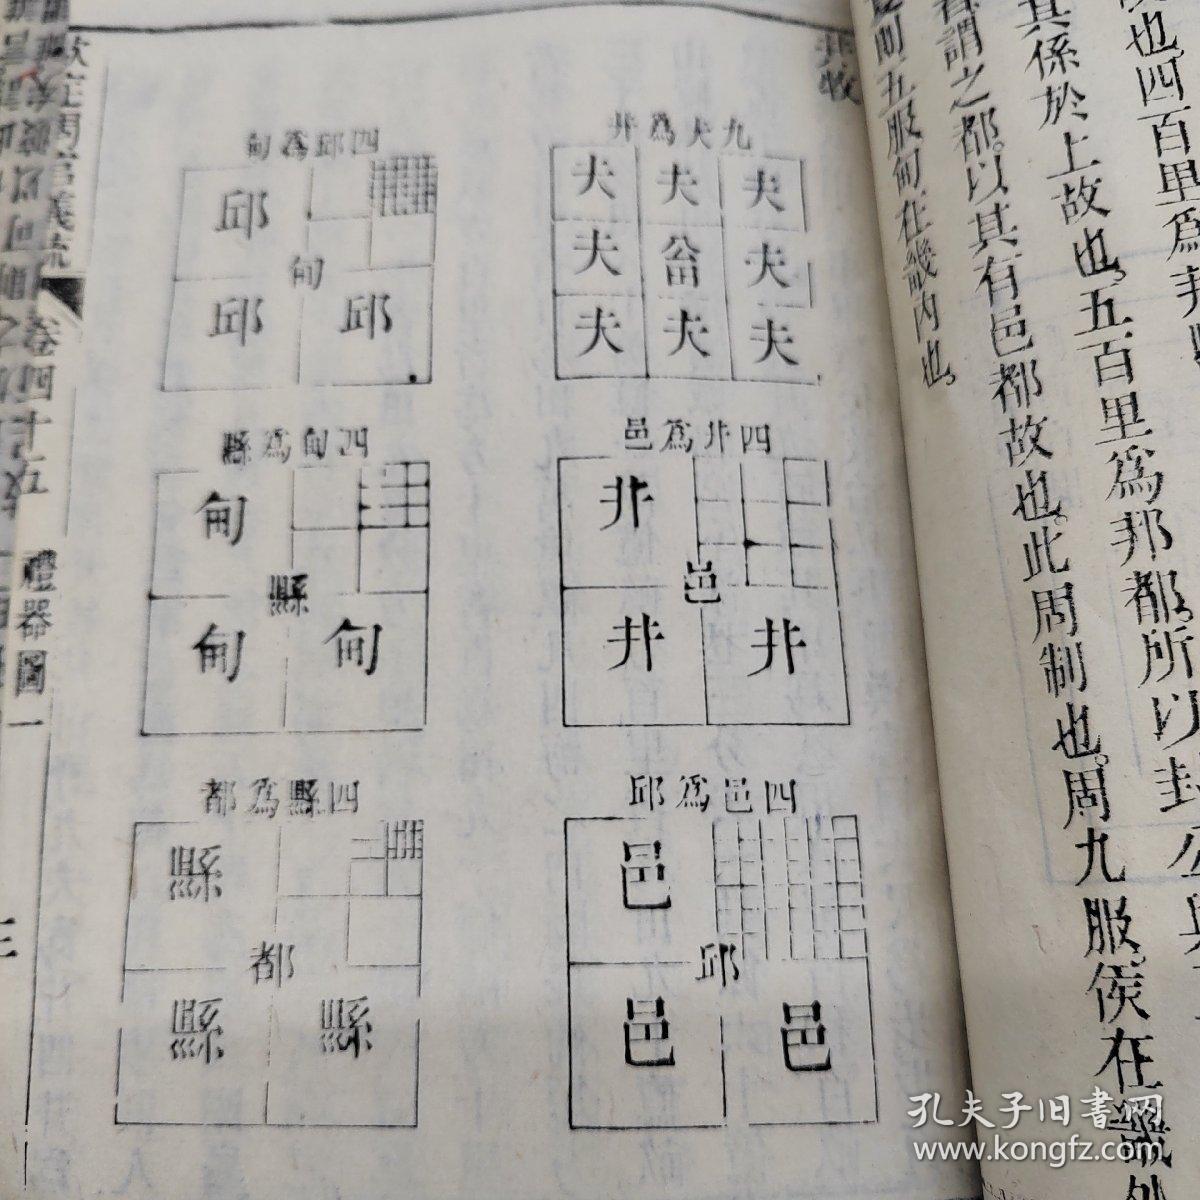 也四百里爲邦
其係於上故也五百里爲邦都所以封公
謂之都以其有邑都故也此周制也周九服侯在畿外
則五服甸在畿内也
井牧
九夫爲井
夫 夫 夫
夫 公田 夫
夫 夫 夫
四井爲邑
井
邑
井 井
四邑爲邱
邑
邱
邑 邑
四邱爲甸
邱
甸
邱 邱
四甸爲縣
甸
縣
甸 甸
四縣爲都
縣
都
縣 縣
欽定周官義疏 卷四十五 禮器圖一 三
孔夫子旧书网
www.kongfz.com